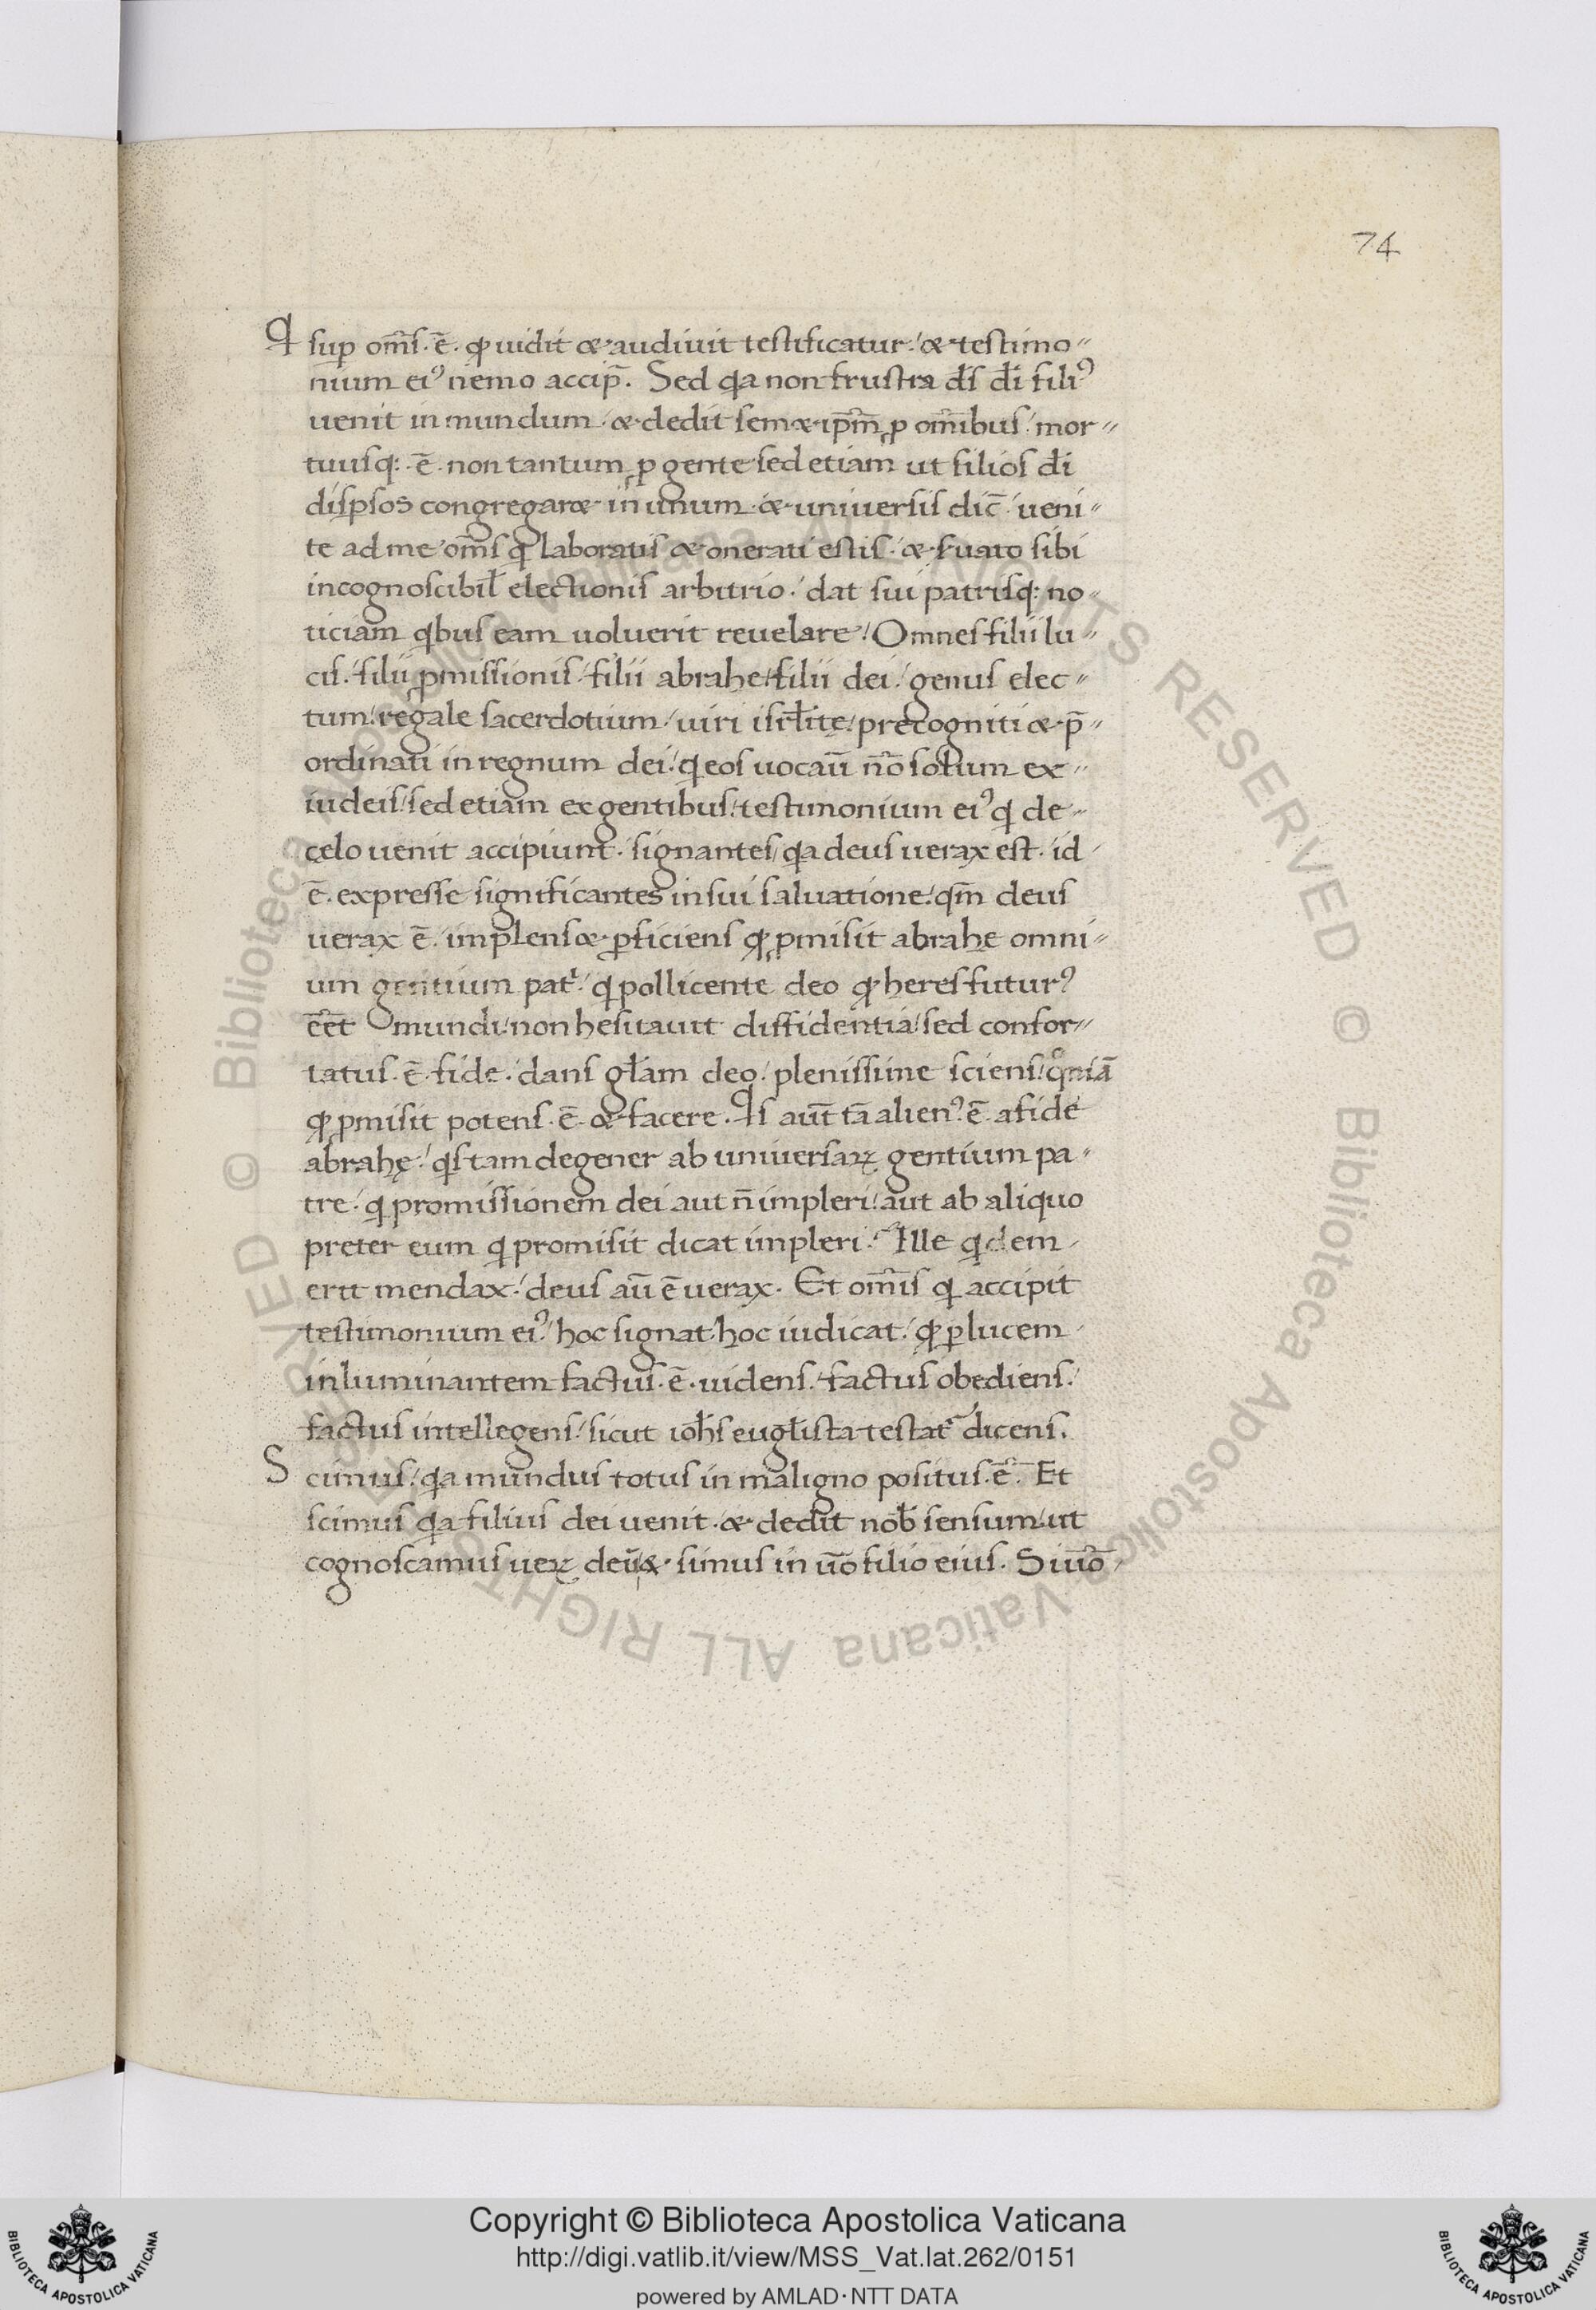 74
Qi sup om̄s · ē · qđ uidit & audiuit testificatur / & testimo-
nium ei9 nemo accip̄. Sed qa non frustra dꝭ di fili9
uenit in mundum / & dedit sem&ip̄m ꝓ om̄ibus / mor-
tuusq: · ē · non tantum ꝓ gente sed etiam ut filios di
dispsos congregar& in unum · & uniuersis dic̄ / ueni-
te ad me om̄s qi laboratis & onerati estis · & suato sibi
incognoscibil̵ electionis arbitrio · dat sui patrisq: no-
ticiam qbus eam uoluerit reuelare / Omnes filii lu-
cis · filii ꝓmissionis / filii abrahe / filii dei / genus elec-
tum / regale sacerdotium / uiri isrl̵itę / precogniti & p̄-
ordinati in regnum dei / qi eos uocau̅ nō solum ex
iudeis / sed etiam ex gentibus / testimonium ei9 qi de
cęlo uenit accipiunt · signantes / qa deus uerax est · id
ē · expresse significantes in sui saluatione / qm̄ deus
uerax ē / implens & ꝑficiens qđ ꝓmisit abrahę omni-
um gentium pat̵ / qi pollicente deo qđ heres futur9
ēēt mundi / non hesitauit diffidentia / sed confor-
tatus · ē · fide · dans gl̵am deo / plenissime sciens / qniā
qđ ꝓmisit potens · ē · & facere · Qis aut̅ tā alien9 · ē · a fide
abrahę / qis tam degener ab uniuersaꝝ gentium pa-
tre · qi promissionem dei aut n̄ impleri / aut ab aliquo
preter eum qi promisit dicat impleri · Ille qidem
erit mendax / deus au̅ ē uerax · Et om̄is qi accipit
testimonium ei9 / hoc signat hoc iudicat / qđ ꝑ lucem
inluminantem factus · ē · uidens · factus obediens /
factus intellegens / sicut ioh̵s eugl̵ista testat̃ dicens .
Scimus / qa mundus totus in maligno positus · ē · Et
scimus qa filius dei uenit · & dedit nob̵ sensum / ut
cognoscamus ueꝝ deū / & simus in ūo filio eius · Si uō
Copyright © Biblioteca Apostolica Vaticana
http://digi.vatlib.it/view/MSS_Vat.lat.262/0151
powered by AMLAD·NTT DATA
BIBLIOTECA APOSTOLICA VATICANA
BIBLIOTECA APOSTOLICA VATICANA